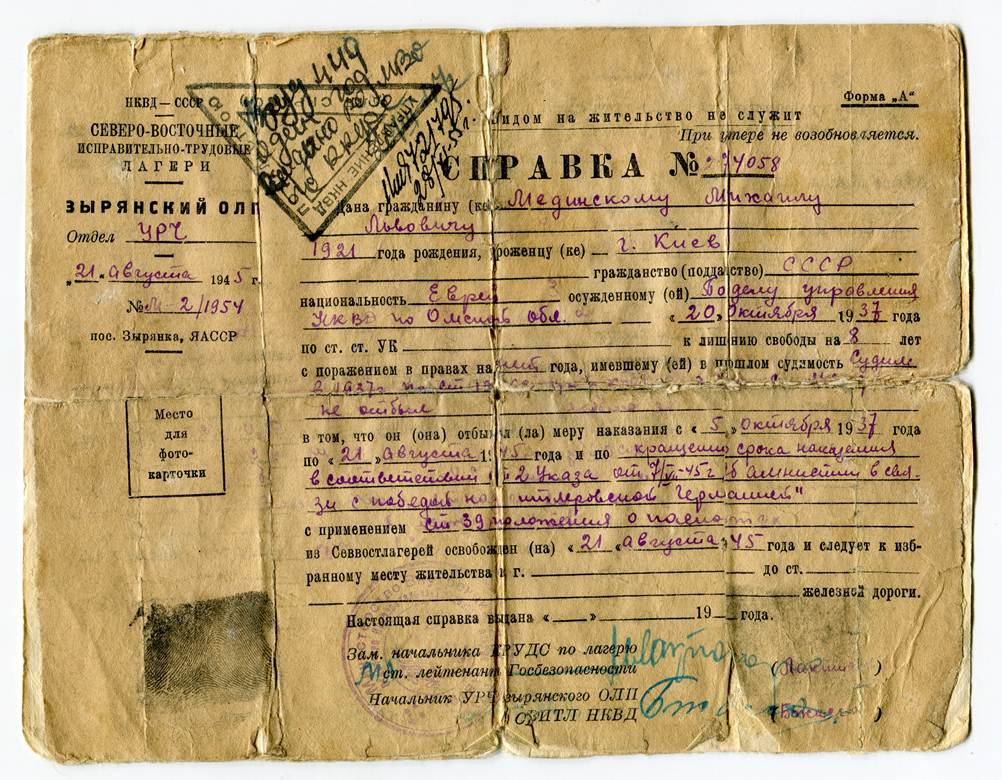 НКВД — СССР
СЕВЕРО-ВОСТОЧНЫЕ
ИСПРАВИТЕЛЬНО-ТРУДОВЫЕ
ЛАГЕРИ
ЗЫРЯНСКИЙ ОЛП
Отдел УРЧ
„21„ Августа 1945 г.
№ М-2/1954
пос. Зырянка, ЯАССР
Место
для
фото-
карточки
Форма „А"
Видом на жительство не служит
При утере не возобновляется.
СПРАВКА № 274058
Дана гражданину (ке) Мединскому Михаилу
Львовичу
1921 года рождения, уроженцу (ке) г. Киев
гражданство (подданство) СССР
национальность Еврей осужденному (ой) По делу управления
НКВД по Омской обл. „20„ Октября 1937 года
по ст. ст. УК к лишению свободы на 8 лет
с поражением в правах на нет года, имевшему (ей) в прошлом судимость Судим
в 1937г. по ст
не отбыл
в том, что он (она) отбывал (ла) меру наказания с «5„ Октября 1937 года
по «21„ Августа 1945 года и по сокращении срока наказания
в соответствии ст 2 Указа от 7/VII-45г „об амнистии в свя-
зи с победой над гитлеровской Германией"
с применением ст 39 положения о паспортах
из Севвостлагерей освобожден (на) «21„ Августа 1945 года и следует к изб-
ранному месту жительства в г. до ст.
железной дороги.
Настоящая справка выдана «   » 19   года.
Зам. начальника КРУДС по лагерю
Мл ст. лейтенант Госбезопасности
Начальник УРЧ зырянского ОЛП
СВИТЛ НКВД